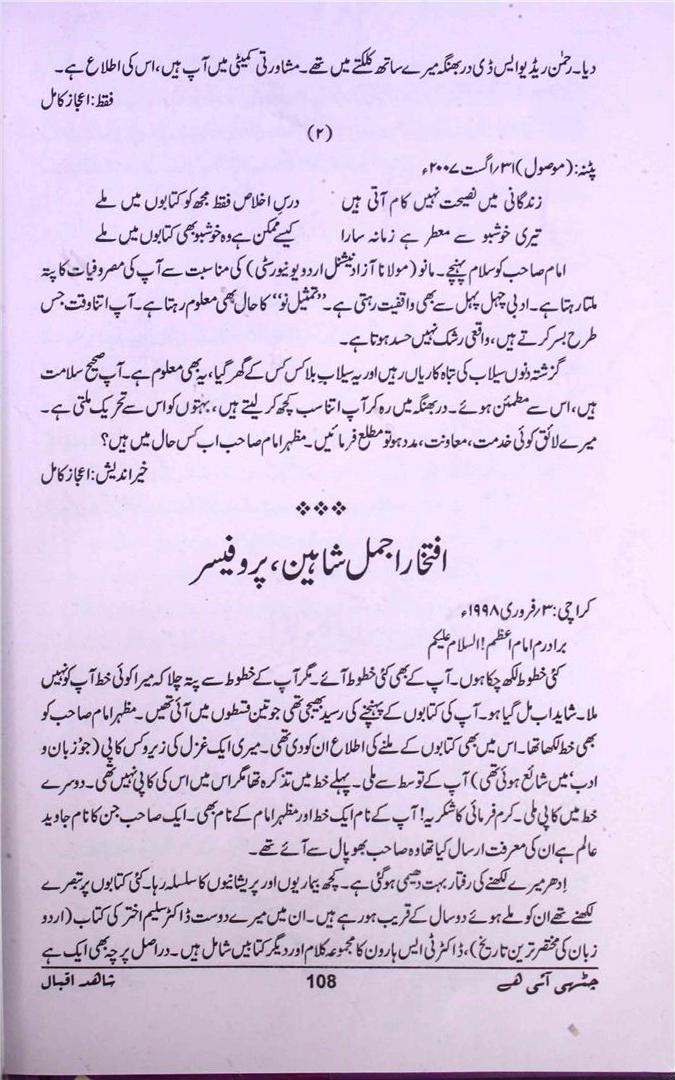 دیا۔ رحمٰن ریڈیو ایس ڈی دربھنگہ میرے ساتھ کلکتے میں تھے۔ مشاورتی کمیٹی میں آپ ہیں، اس کی اطلاع ہے۔
فقط: اعجاز کامل
(۲)
پٹنہ: (موصول) ۳۱/اگست ۲۰۰۷ء
زندگانی میں نصیحت نہیں کام آتی ہیں درسِ اخلاص فقط مجھ کو کتابوں میں ملے
تیری خوشبو سے معطر ہے زمانہ سارا کیسے ممکن ہے وہ خوشبو بھی کتابوں میں ملے
امام صاحب کو سلام پہنچے۔ مانو (مولانا آزاد نیشنل اردو یونیورسٹی) کی مناسبت سے آپ کی مصروفیات کا پتہ
ملتا رہتا ہے۔ ادبی چہل پہل سے بھی واقفیت رہتی ہے۔ ”تمثیل نو“ کا حال بھی معلوم رہتا ہے۔ آپ اتنا وقت جس
طرح بسر کرتے ہیں، واقعی رشک نہیں حسد ہوتا ہے۔
گزشتہ دنوں سیلاب کی تباہ کاریاں رہیں اور یہ سیلابِ بلا کس کس کے گھر گیا، یہ بھی معلوم ہے۔ آپ صحیح سلامت
ہیں، اس سے مطمئن ہوئے۔ دربھنگہ میں رہ کر آپ اتنا سب کچھ کر لیتے ہیں، بہتوں کو اس سے تحریک ملتی ہے۔
میرے لائق کوئی خدمت، معاونت، مدد ہو تو مطلع فرمائیں۔ مظہر امام صاحب اب کس حال میں ہیں؟
خیر اندیش: اعجاز کامل
افتخار اجمل شاہین، پروفیسر
کراچی: ۳/فروری ۱۹۹۸ء
برادرم امام اعظم! السلام علیکم
کئی خطوط لکھ چکا ہوں۔ آپ کے بھی کئی خطوط آئے۔ مگر آپ کے خطوط سے پتہ چلا کہ میرا کوئی خط آپ کو نہیں
ملا۔ شاید اب مل گیا ہو۔ آپ کی کتابوں کے پہنچنے کی رسید بھیجی تھی جو تین قسطوں میں آئی تھیں۔ مظہر امام صاحب کو
بھی خط لکھا تھا۔ اس میں بھی کتابوں کے ملنے کی اطلاع ان کو دی تھی۔ میری ایک غزل کی زیروکس کاپی (جو ’زبان و
ادب‘ میں شائع ہوئی تھی) آپ کے توسط سے ملی۔ پہلے خط میں تذکرہ تھا مگر اس میں اس کی کاپی نہیں تھی۔ دوسرے
خط میں کاپی ملی۔ کرم فرمائی کا شکریہ! آپ کے نام ایک خط اور مظہر امام کے نام بھی۔ ایک صاحب جن کا نام جاوید
عالم ہے ان کی معرفت ارسال کیا تھا وہ صاحب بھوپال سے آئے تھے۔
اِدھر میرے لکھنے کی رفتار بہت دھیمی ہو گئی ہے۔ کچھ بیماریوں اور پریشانیوں کا سلسلہ رہا۔ کئی کتابوں پر تبصرے
لکھنے تھے ان کو ملے ہوئے دو سال کے قریب ہو رہے ہیں۔ ان میں میرے دوست ڈاکٹر سلیم اختر کی کتاب (اردو
زبان کی مختصر ترین تاریخ)، ڈاکٹر ٹی ایس ہارون کا مجموعہ کلام اور دیگر کتابیں شامل ہیں۔ دراصل پرچہ بھی ایک ہے
چٹھی آئی ہے 108 شاہد اقبال